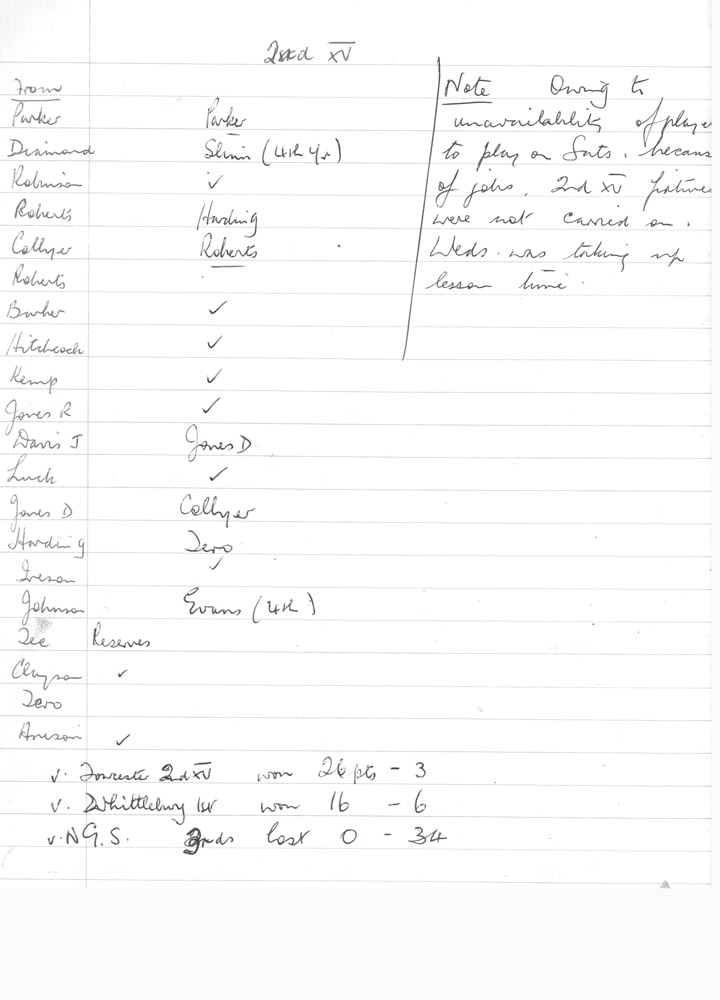 2nd XV
From
Parker Parker
Diamond Slinn (4th yr)
Robinson ✓
Roberts Harding
Collyer Roberts
Roberts
Barber ✓
Hitchcock ✓
Kemp ✓
Jones R ✓
Davis J Jones D
Luck ✓
Jones D Collyer
Harding Zero
Ireson ✓
Johnson Evans (4th)
Tee Reserves
Clayson ✓
Zero
✓
v. Towcester 2nd XV won 26 pts - 3
v. Whittlebury 1st won 16 - 6
v. N G.S. 2nds lost 0 - 34
Note Owing to
unavailability of playe
to play on Sats. becaus
of jobs, 2nd XV fixtures
were not carried on.
Weds. was taking up
lesson time.